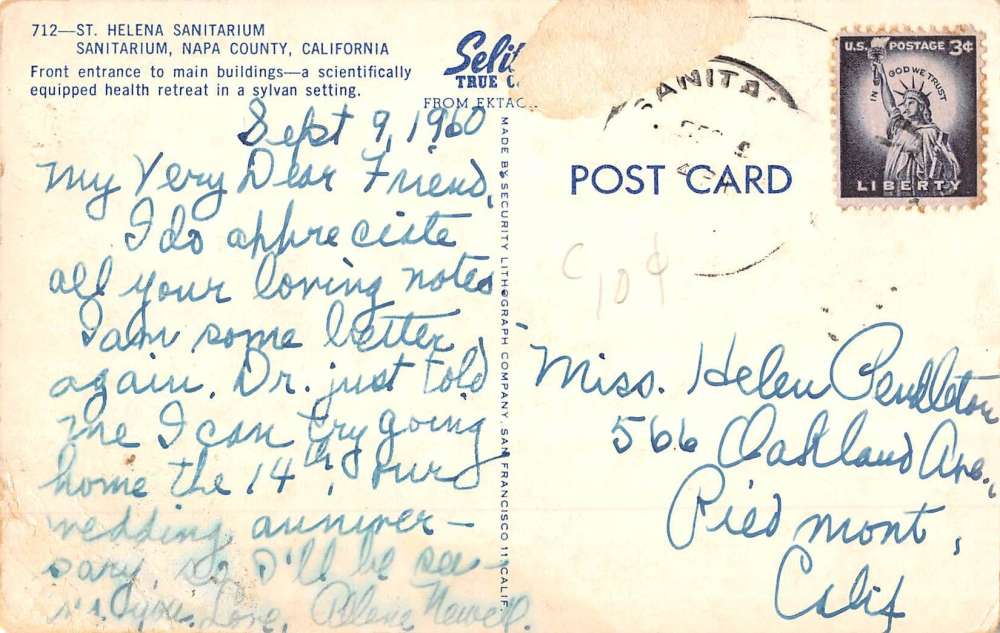 712—ST. HELENA SANITARIUM
SANITARIUM, NAPA COUNTY, CALIFORNIA
Front entrance to main buildings—a scientifically
equipped health retreat in a sylvan setting.
TRUE C
FROM EKTAC
MADE BY SECURITY LITHOGRAPH COMPANY, SAN FRANCISCO 11 CALIF.
SANITA
U.S. POSTAGE 3¢
IN GOD WE TRUST
LIBERTY
POST CARD
C 10¢
Sept 9, 1960
My Very Dear Friend,
I do appreciate
all your loving notes
I am some better
again. Dr. just told
me I can try going
home the 14th, our
wedding anniver-
sary, so I'll be see-
you. Love, Newell.
Miss. Helen Pendleton
566 Oakland Ave.,
Piedmont,
Calif